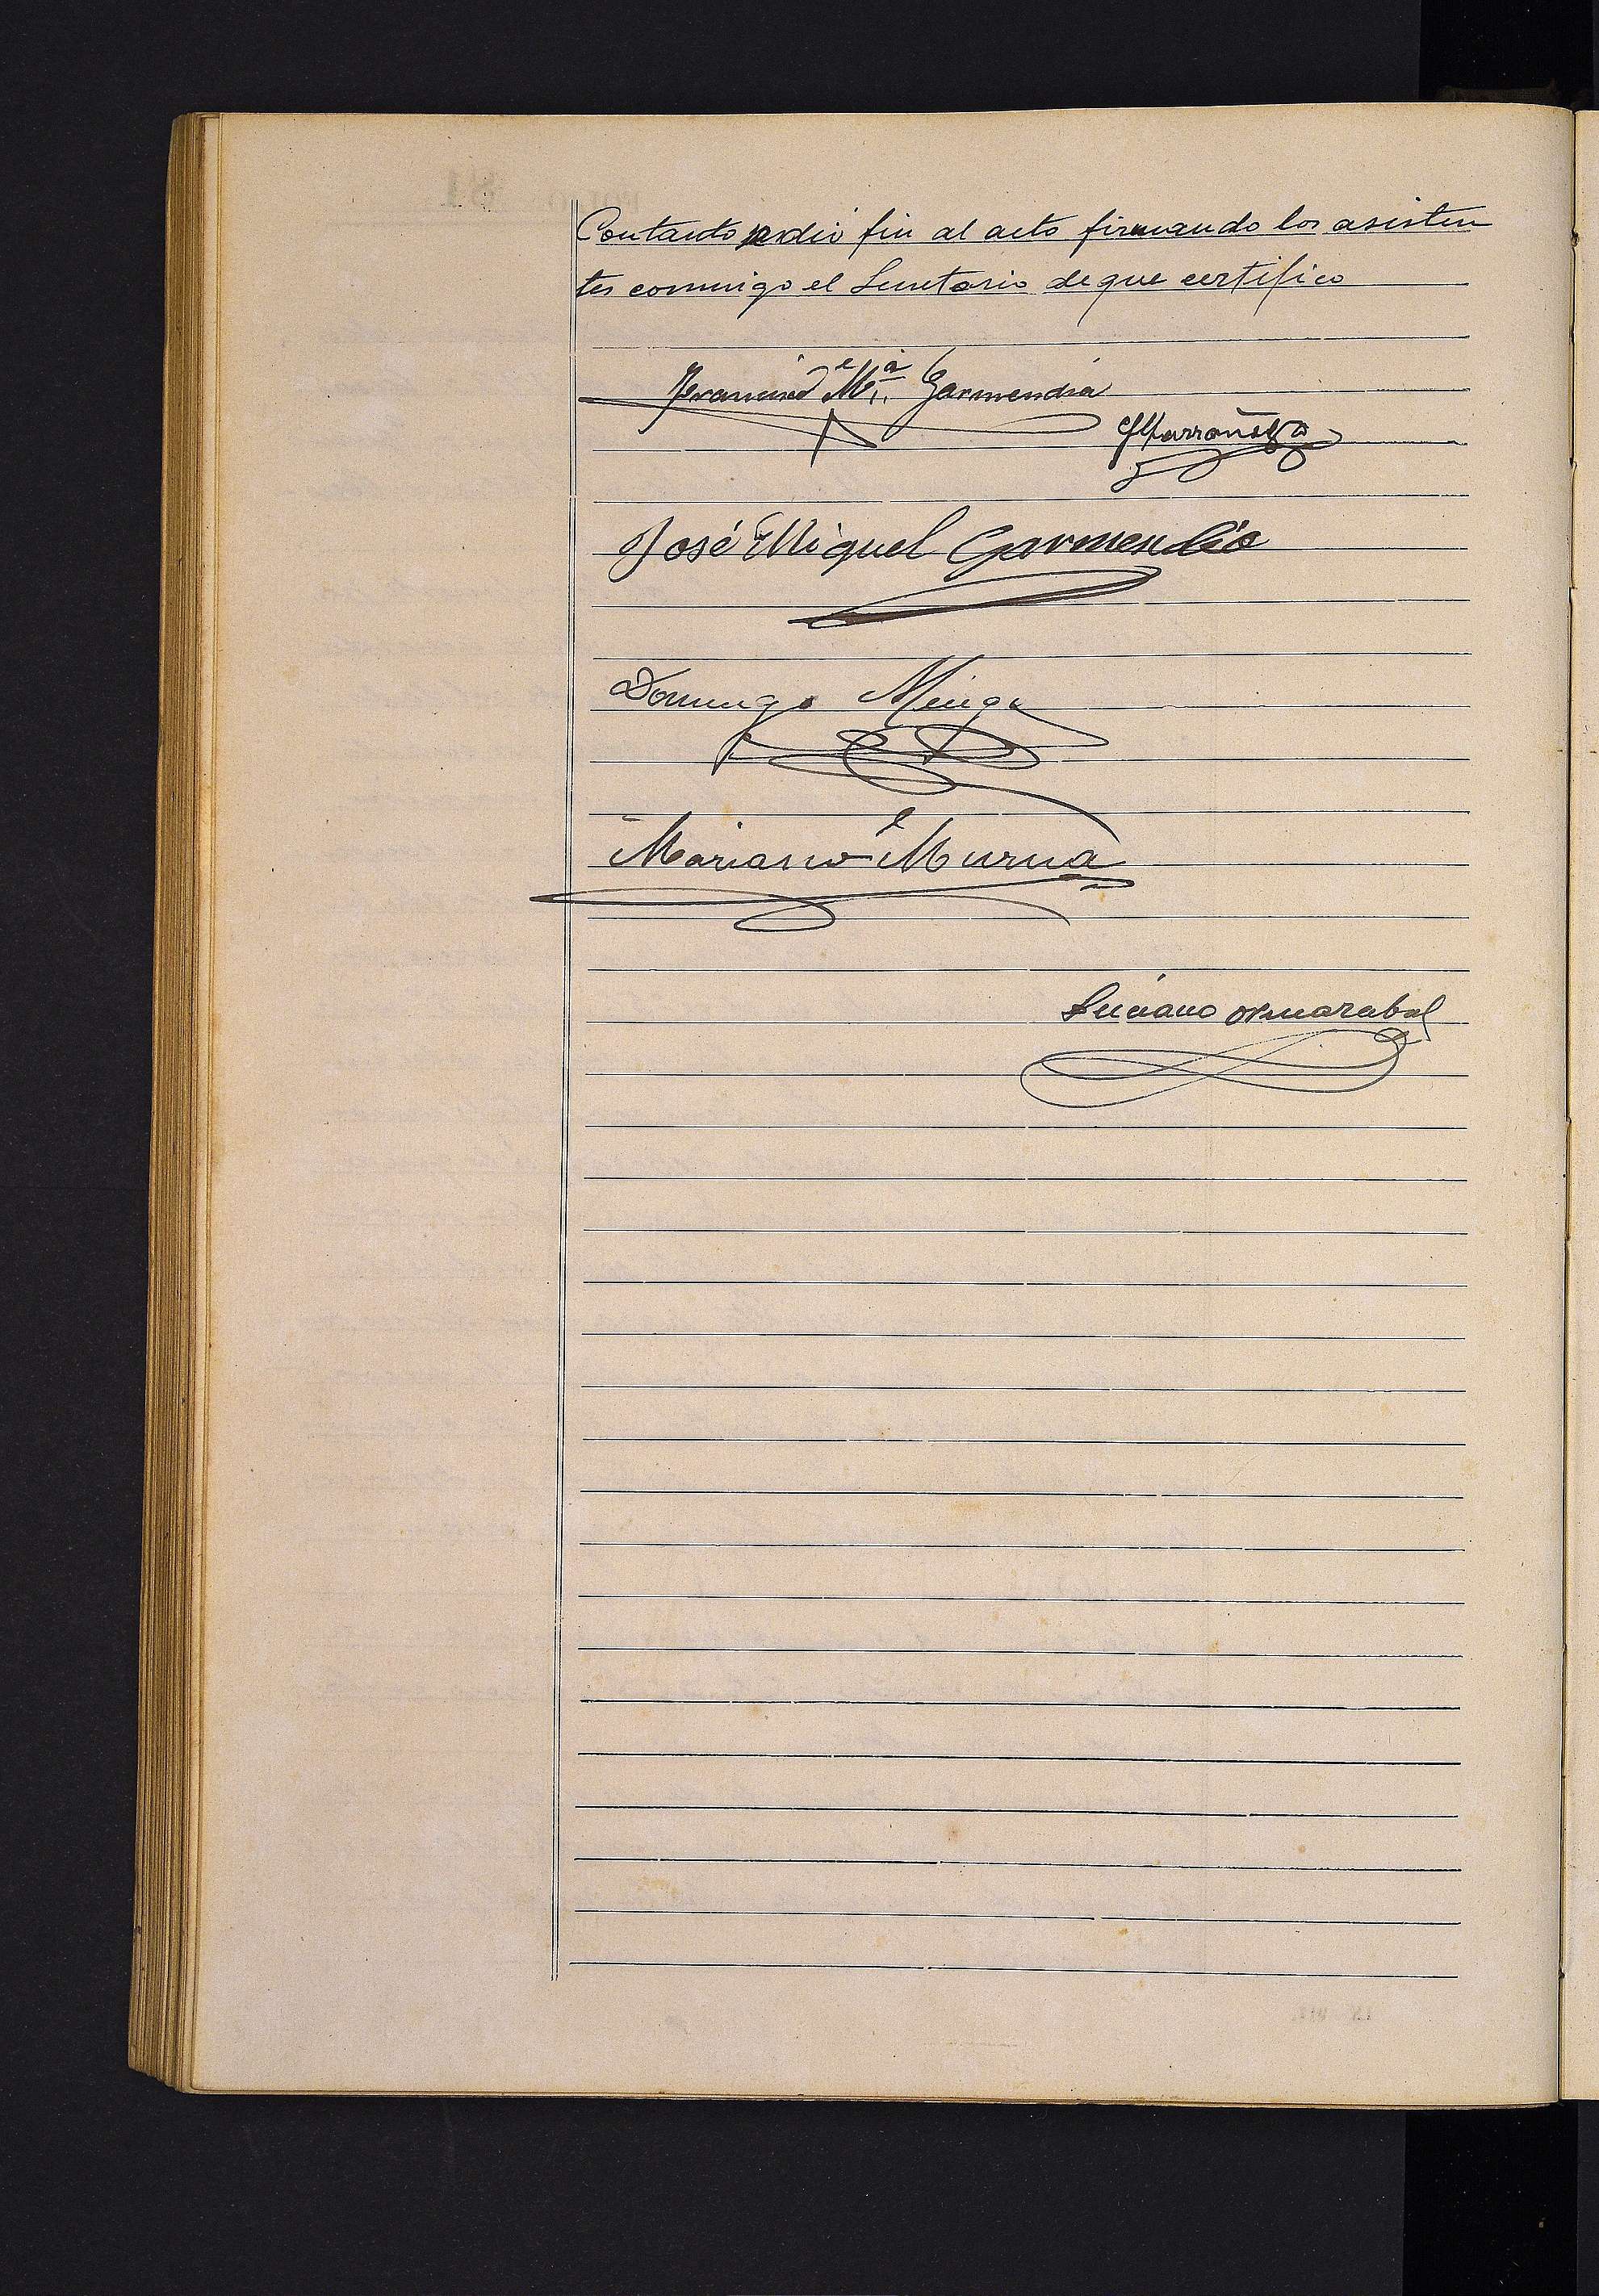 Con tanto se dió fin al acto firmando los asisten
tes conmigo el Secretario de que certifico
Francisco Mª Garmendia
José Miguel Garmendia
Domingo
Mariano Murua
Luciano Ormazabal